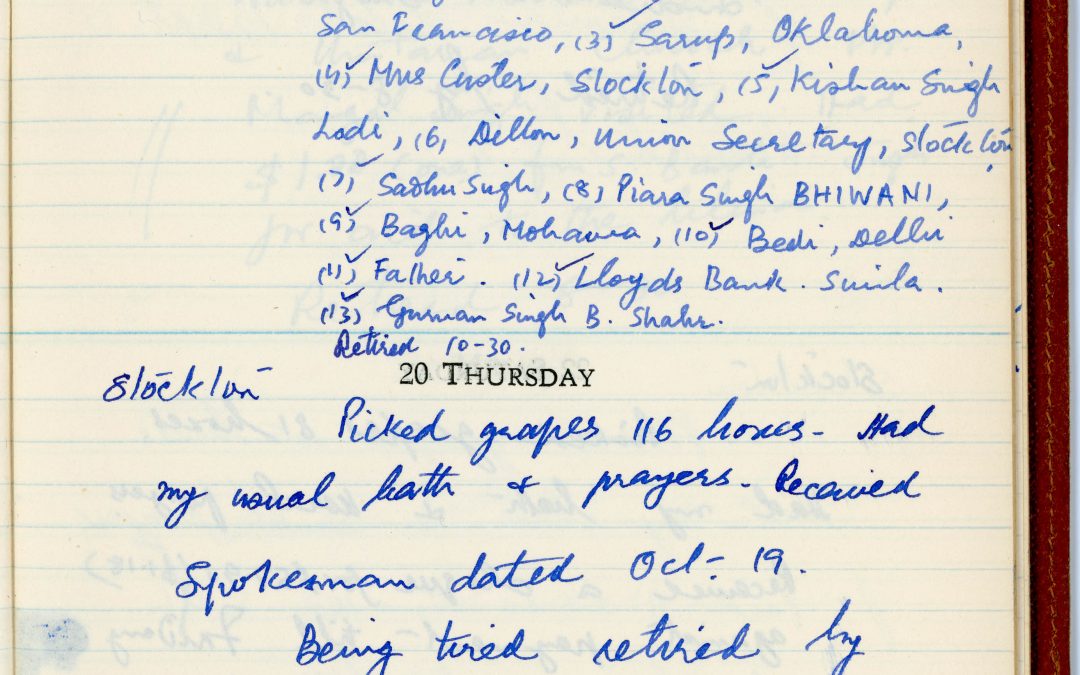 San Francisco, (3) Sarup, Oklahoma,
(4) Mrs Custer, Stockton, (5) Kishan Singh
Lodi, (6) Dillon, Union Secretary, Stockton,
(7) Sadhu Singh, (8) Piara Singh BHIWANI,
(9) Baghi, (10) Bedi, Delhi
(11) Father. (12) Lloyds Bank. Simla.
(13) Gurnan Singh B. Shahr.
Retired 10-30.
20 THURSDAY
Stockton
Picked grapes 116 boxes - Had
my usual bath & prayers - Received
Spokesman dated Oct. 19.
Being tired retired by